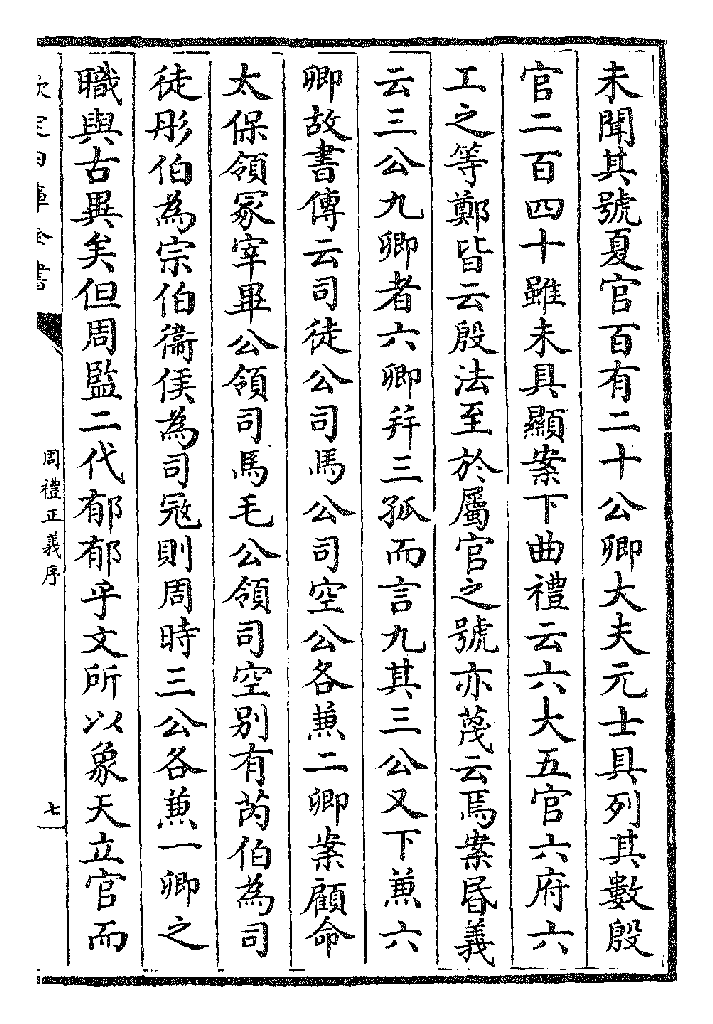 未聞其號夏官百有二十公卿大夫元士具列其數殷
官二百四十雖未具顯案下曲禮云六大五官六府六
工之等鄭皆云殷法至於屬官之號亦蔑云焉案昏義
云三公九卿者六卿并三孤而言九其三公又下兼六
卿故書傳云司徒公司馬公司空公各兼二卿案顧命
太保領冢宰畢公領司馬毛公領司空別有芮伯為司
徒彤伯為宗伯衞侯為司寇則周時三公各兼一卿之
職與古異矣但周監二代郁郁乎文所以象天立官而
欽定四庫全書
周禮正義序
七